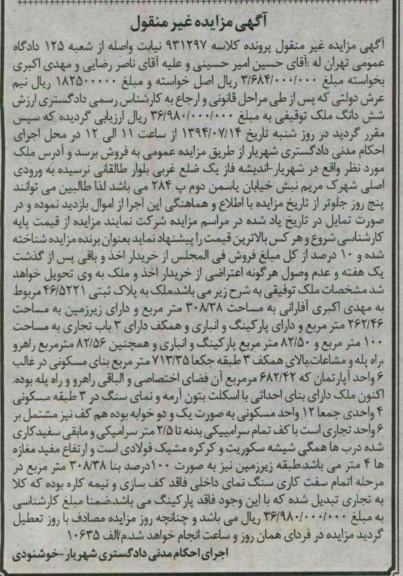 آگهی مزایده غیر منقول
آگهی مزایده غیر منقول پرونده کلاسه ۹۳۱۲۹۷ نیابت واصله از شعبه ۱۲۵ دادگاه
عمومی تهران له :آقای حسین امیر حسینی و علیه آقای ناصر رضایی و مهدی اکبری
بخواسته مبلغ ۳/۶۸۴/۰۰۰/۰۰۰ ریال اصل خواسته و مبلغ ۱۸۲۵۰۰۰۰۰ ریال نیم
عرش دولتی که پس از طی مراحل قانونی و ارجاع به کارشناس رسمی دادگستری ارزش
شش دانگ ملک توقیفی به مبلغ ۳۶/۹۸۰/۰۰۰/۰۰۰ ریال ارزیابی گردیده که سپس
مقرر گردید در روز شنبه تاریخ ۱۳۹۴/۰۷/۱۴ از ساعت ۱۱ الی ۱۲ در محل اجرای
احکام مدنی دادگستری شهریار از طریق مزایده عمومی به فروش برسد و آدرس ملک
مورد نظر واقع در شهریار-اندیشه فاز یک ضلع غربی بلوار طالقانی نرسیده به ورودی
اصلی شهرک مریم نبش خیابان یاسمن دوم پ ۲۸۴ می باشد لذا طالبین می توانند
پنج روز جلوتر از تاریخ مزایده با اطلاع و هماهنگی این اجرا از اموال بازدید نموده و در
صورت تمایل در تاریخ یاد شده در مراسم مزایده شرکت نمایند مزایده از قیمت پایه
کارشناسی شروع و هر کس بالاترین قیمت را پیشنهاد نماید بعنوان برنده مزایده شناخته
شده و ۱۰ درصد از کل مبلغ فروش فی المجلس از خریدار اخذ و باقی پس از گذشت
یک هفته و عدم وصول هرگونه اعتراضی از خریدار اخذ و ملک به وی تحویل خواهد
شد مشخصات ملک توقیفی به شرح زیر می باشد:ملک به پلاک ثبتی ۴۶/۵۲۲۱ مربوط
به مهدی اکبری آفارانی به مساحت ۳۰۸/۳۸ متر مربع و دارای زیرزمین به مساحت
۲۶۲/۴۶ متر مربع و دارای پارکینگ و انباری و همکف دارای ۳ باب تجاری به مساحت
۱۰۰ متر مربع و ۸۲/۵۰ متر مربع پارکینگ و انباری و همچنین ۸۲/۵۶ مترمربع راهرو
،راه پله و مشاعات،بالای همکف ۳ طبقه جکعا ۷۱۳/۳۵ متر مربع بنای مسکونی در غالب
۶ واحد آپارتمان که ۶۸۲/۴۲ مرمربع آن فضای اختصاصی و الباقی راهرو و راه پله بوده.
اکنون ملک دارای بنای احداثی با اسکلت بتون آرمه و نمای سنگ در ۳ طبقه مسکونی
۴ واحدی جمعا ۱۲ واحد مسکونی به صورت یک و دو خوابه بوده هم کف نیز مشتمل بر
۶ واحد تجاری است با کف تمام سرامیکی بدنه تا ۲/۵ متر سرامیکی و مابقی سفیدکاری
شده درب ها همگی شیشه سکوریت و کرکره مشبک فولادی است و ارتفاع مفید مغازه
ها ۴ متر می باشد.طبقه زیرزمین نیز به صورت ۱۰۰درصد بنا ۳۰۸/۳۸ متر مربع در
مرحله اتمام سفت کاری سنگ نمای داخلی فاقد کف سازی و نیمه کاره بوده که کلا
به تجاری تبدیل شده که با این وجود فاقد پارکینگ می باشد.ضمنا مبلغ کارشناسی
به مبلغ ۳۶/۹۸۰/۰۰۰/۰۰۰ ریال می باشد و چنانچه روز مزایده مصادف با روز تعطیل
گردید مزایده در فردای همان روز و ساعت انجام خواهد شد.م/الف ۱۰۶۳۵
اجرای احکام مدنی دادگستری شهریار-خوشنودی